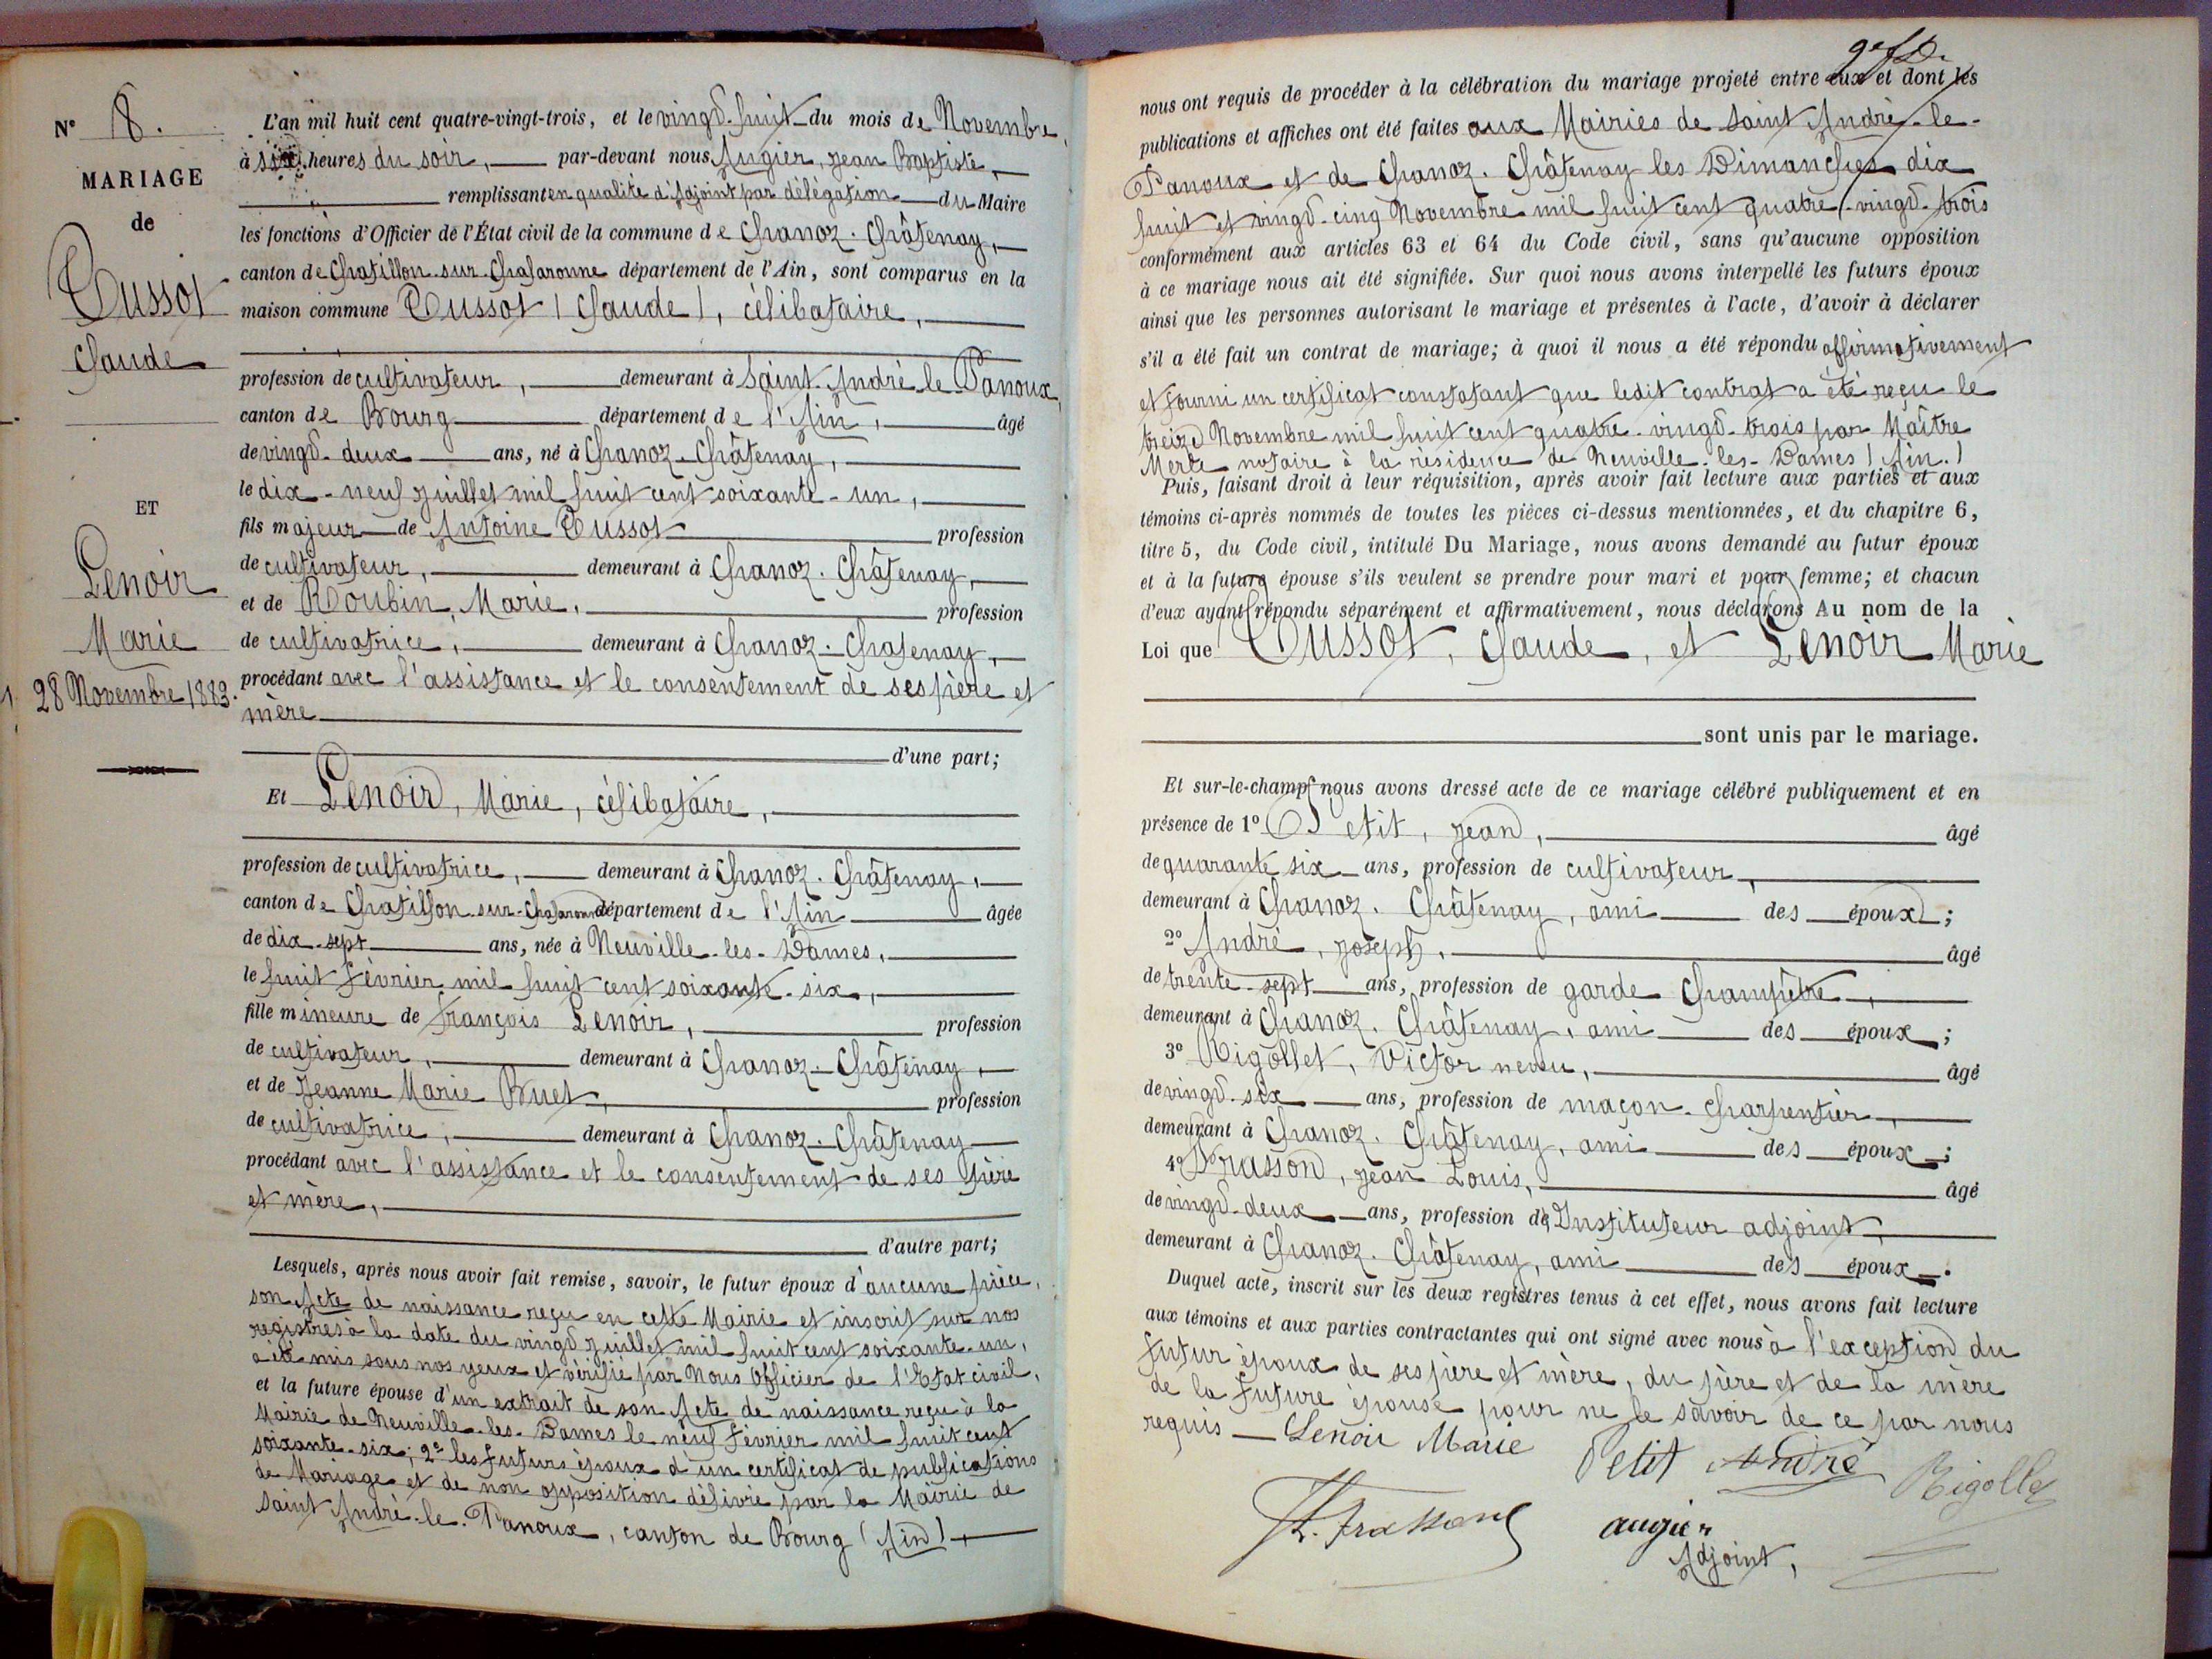 N° 8.
MARIAGE
de
Tussot
Claude
ET
Lenoir
Marie
28 Novembre 1883.
L'an mil huit cent quatre-vingt-trois, et le vingt-huit du mois de Novembre,
à six heures du soir, par-devant nous Augier, Jean Baptiste,
remplissant en qualité d'Adjoint par délégation du Maire
les fonctions d'Officier de l'État civil de la commune de Chanoz-Châtenay,
canton de Chatillon-sur-Chalaronne département de l'Ain, sont comparus en la
maison commune Tussot (Claude), célibataire,
profession de cultivateur, demeurant à Saint-André-le-Panoux,
canton de Bourg département de l'Ain, âgé
de vingt-deux ans, né à Chanoz-Châtenay,
le dix-neuf Juillet mil huit cent soixante-un,
fils majeur de Antoine Tussot profession
de cultivateur, demeurant à Chanoz-Châtenay,
et de Roubin, Marie, profession
de cultivatrice, demeurant à Chanoz-Chatenay,
procédant avec l'assistance et le consentement de ses père et
mère
d'une part;
Et Lenoir, Marie, célibataire,
profession de cultivatrice, demeurant à Chanoz-Châtenay,
canton de Chatillon-sur-Chalaronne département de l'Ain âgée
de dix-sept ans, née à Neuville-les-Dames,
le huit Février mil huit cent soixante-six,
fille mineure de François Lenoir, profession
de cultivateur, demeurant à Chanoz-Châtenay,
et de Jeanne Marie Buet, profession
de cultivatrice, demeurant à Chanoz-Châtenay
procédant avec l'assistance et le consentement de ses père
et mère,
d'autre part;
Lesquels, après nous avoir fait remise, savoir, le futur époux d'aucune pièce,
son Acte de naissance reçu en cette Mairie et inscrit sur nos
registres à la date du vingt Juillet mil huit cent soixante-un,
a été mis sous nos yeux et vérifié par Nous Officier de l'Etat civil,
et la future épouse d'un extrait de son Acte de naissance reçu à la
Mairie de Neuville-les-Dames le neuf Février mil huit cent
soixante-six; 2° les futurs époux d'un certificat de publications
de Mariage et de non opposition délivré par la Mairie de
Saint André-le-Panoux, canton de Bourg (Ain)
nous ont requis de procéder à la célébration du mariage projeté entre eux et dont les
publications et affiches ont été faites aux Mairies de Saint André-le-
Panoux et de Chanoz-Châtenay les Dimanches dix
huit et vingt-cinq Novembre mil huit cent quatre-vingt-trois
conformément aux articles 63 et 64 du Code civil, sans qu'aucune opposition
à ce mariage nous ait été signifiée. Sur quoi nous avons interpellé les futurs époux
ainsi que les personnes autorisant le mariage et présentes à l'acte, d'avoir à déclarer
s'il a été fait un contrat de mariage; à quoi il nous a été répondu affirmativement
et fourni un certificat constatant que ledit contrat a été reçu le
treize Novembre mil huit cent quatre-vingt-trois par Maître
Merle notaire à la résidence de Neuville-les-Dames (Ain.)
Puis, faisant droit à leur réquisition, après avoir fait lecture aux parties et aux
témoins ci-après nommés de toutes les pièces ci-dessus mentionnées, et du chapitre 6,
titre 5, du Code civil, intitulé Du Mariage, nous avons demandé au futur époux
et à la future épouse s'ils veulent se prendre pour mari et pour femme; et chacun
d'eux ayant répondu séparément et affirmativement, nous déclarons Au nom de la
Loi que Tussot, Claude, et Lenoir Marie
sont unis par le mariage.
Et sur-le-champ nous avons dressé acte de ce mariage célébré publiquement et en
présence de 1° Petit, Jean, âgé
de quarante six ans, profession de cultivateur,
demeurant à Chanoz-Châtenay, ami des époux;
2° André, Joseph, âgé
de trente-sept ans, profession de garde Champêtre,
demeurant à Chanoz-Châtenay, ami des époux;
3° Rigollet, Victor neveu, âgé
de vingt-six ans, profession de maçon-charpentier,
demeurant à Chanoz-Châtenay, ami des époux;
4° Frasson, Jean Louis, âgé
de vingt-deux ans, profession d'Instituteur adjoint,
demeurant à Chanoz-Châtenay, ami des époux.
Duquel acte, inscrit sur les deux registres tenus à cet effet, nous avons fait lecture
aux témoins et aux parties contractantes qui ont signé avec nous à l'exception du
futur époux de ses père et mère, du père et de la mère
de la future épouse pour ne le savoir de ce par nous
requis Lenoir Marie Petit André Rigollet
Frasson Augier
Adjoint,